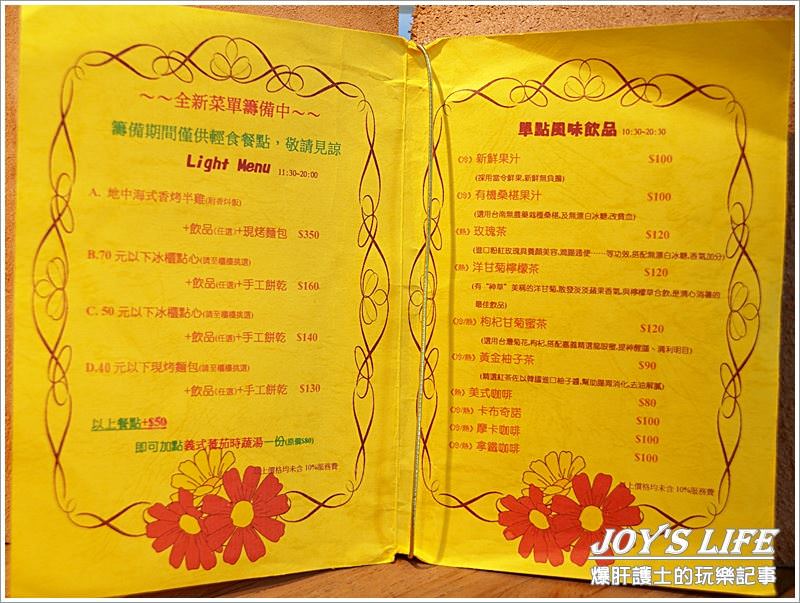 ～～全新菜單籌備中～～
籌備期間僅供輕食餐點，敬請見諒
Light Menu 11:30~20:00
A. 地中海式香烤半雞(附香料飯)
+飲品(任選)+現烤麵包 $350
B.70 元以下冰櫃點心(請至櫃檯挑選)
+飲品(任選)+手工餅乾 $160
C. 50 元以下冰櫃點心(請至櫃檯挑選)
+飲品(任選)+手工餅乾 $140
D.40 元以下現烤麵包(請至櫃檯挑選)
+飲品(任選)+手工餅乾 $130
以上餐點+$50
即可加點義式蕃茄時蔬湯一份(原價$80)
上價格均未含 10%服務費
單點風味飲品 10:30~20:30
(冷) 新鮮果汁 $100
(採用當令鮮果,新鮮無負擔)
(冷) 有機桑椹果汁 $100
(選用台南無農藥栽種桑椹,及無漂白冰糖,改貧血)
(熱) 玫瑰茶 $120
(進口粉紅玫瑰具養顏美容,潤腸通便⋯⋯等功效,搭配無漂白冰糖,香氣加分)
(熱) 洋甘菊檸檬茶 $120
(有“神草”美稱的洋甘菊,散發淡淡蘋果香氣,與檸檬草合飲,是清心消暑的
最佳飲品)
(冷/熱) 枸杞甘菊蜜茶 $120
(選用台灣菊花,枸杞,搭配嘉義精選龍眼蜜,提神醒腦、滿利明目)
(冷/熱) 黃金柚子茶 $90
(精選紅茶佐以韓國進口柚子醬,幫助腸胃消化,去油解膩)
(熱) 美式咖啡 $80
(冷/熱) 卡布奇諾 $100
(冷/熱) 摩卡咖啡 $100
(冷/熱) 拿鐵咖啡 $100
上價格均未含 10%服務費
JOY'S LIFE
爆肝護士的玩樂記事